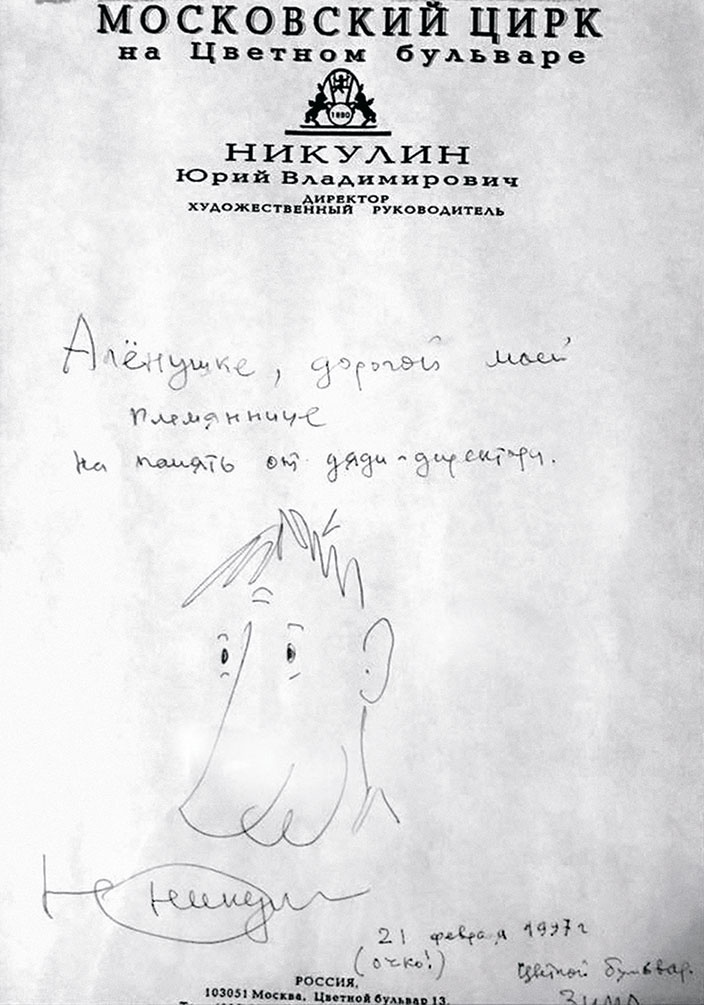 МОСКОВСКИЙ ЦИРК
на Цветном бульваре
1880
НИКУЛИН
Юрий Владимирович
ДИРЕКТОР
ХУДОЖЕСТВЕННЫЙ РУКОВОДИТЕЛЬ
Алёнушке, дорогой моей
племяннице
на память от дяди-директора.
Ю Никулин
21 февраля 1997 г
(очко!)
Цветной бульвар.
Зима
РОССИЯ,
103051 Москва, Цветной бульвар 13.